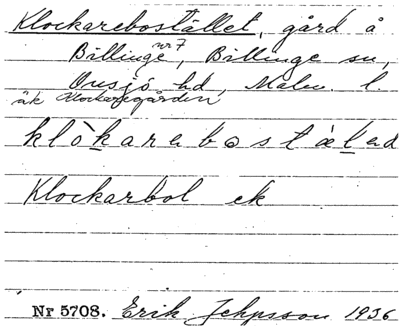 Klockarebostället, gård å
nr 7
Billinge, Billinge sn,
Onsjö hd, Malm. l.
äk Klockaregården
klòkarebostäled
Klockarbol ek
Nr 5708. Erik Jeppsson 1936